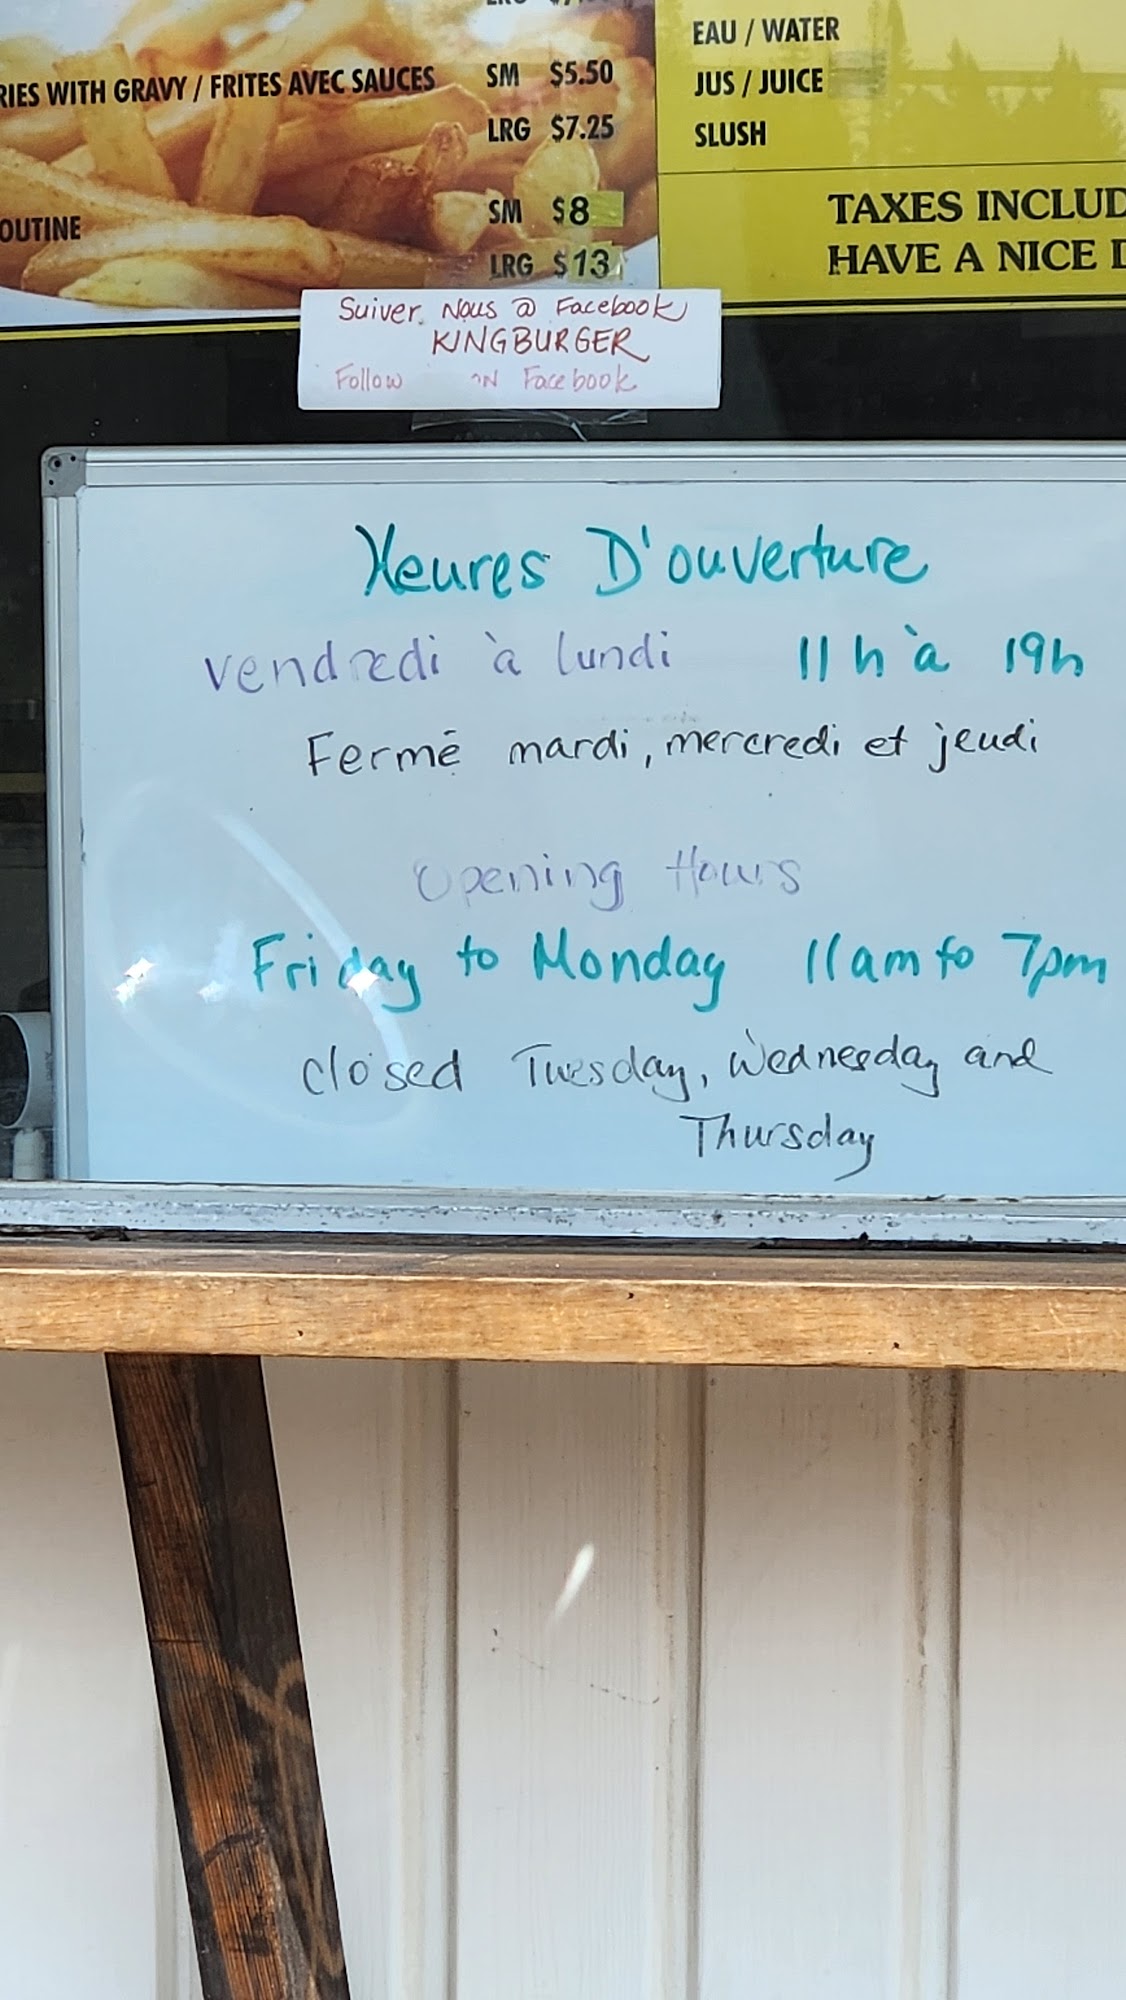 RIES WITH GRAVY / FRITES AVEC SAUCES SM $5.50
LRG $7.25
OUTINE SM $8
LRG $13
EAU / WATER
JUS / JUICE
SLUSH
TAXES INCLUD
HAVE A NICE D
Suiver Nous @ Facebook
KINGBURGER
Follow ON Facebook
Heures D'ouverture
vendredi à lundi 11h à 19h
Fermé mardi, mercredi et jeudi
Opening Hours
Friday to Monday 11am to 7pm
closed Tuesday, Wednesday and
Thursday